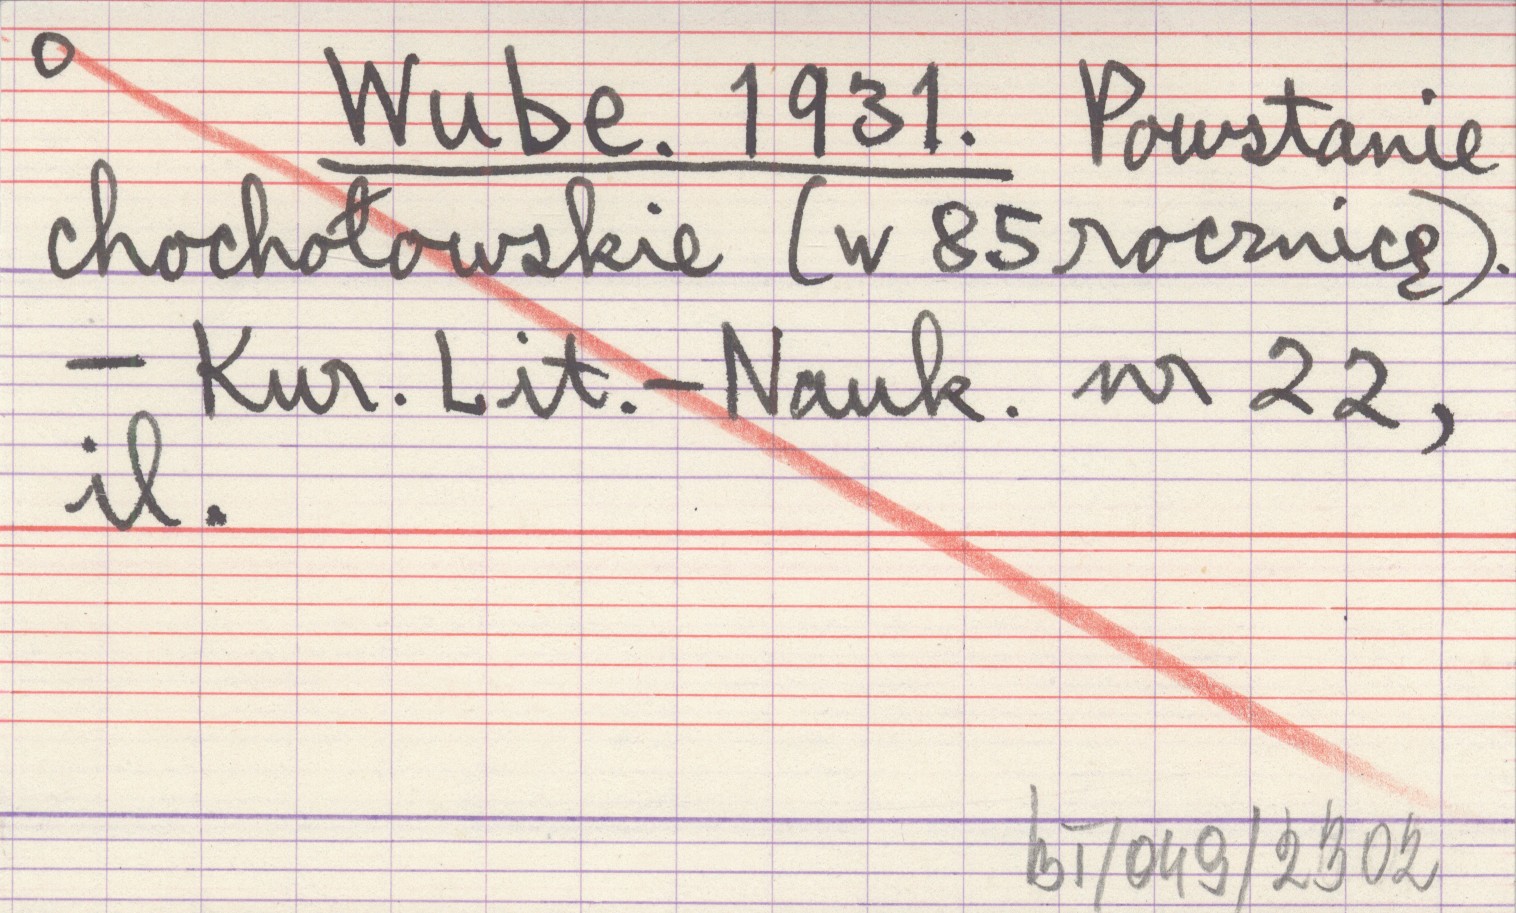 o Wube. 1931. Powstanie
chochołowskie (w 85 rocznicę).
- Kur. Lit.-Nauk. nr 22,
il.
BT/049/2302